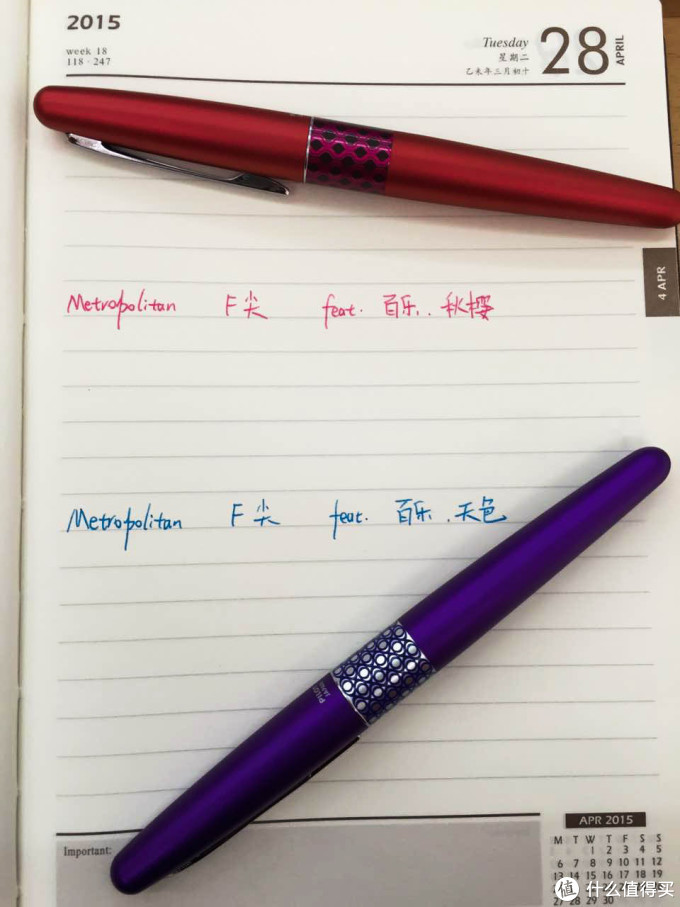 2015
week 18
118 · 247
Tuesday
星期二
乙未年三月初十
28
APRIL
4 APR
Metropolitan F尖 feat. 百乐. 秋樱
Metropolitan F尖 feat. 百乐. 天色
Important:
APR 2015
M T W T F S S
1 2 3 4 5
6 7 8 9 10 11 12
13 14 15 16 17 18 19
27 28 29 30
值 什么值得买